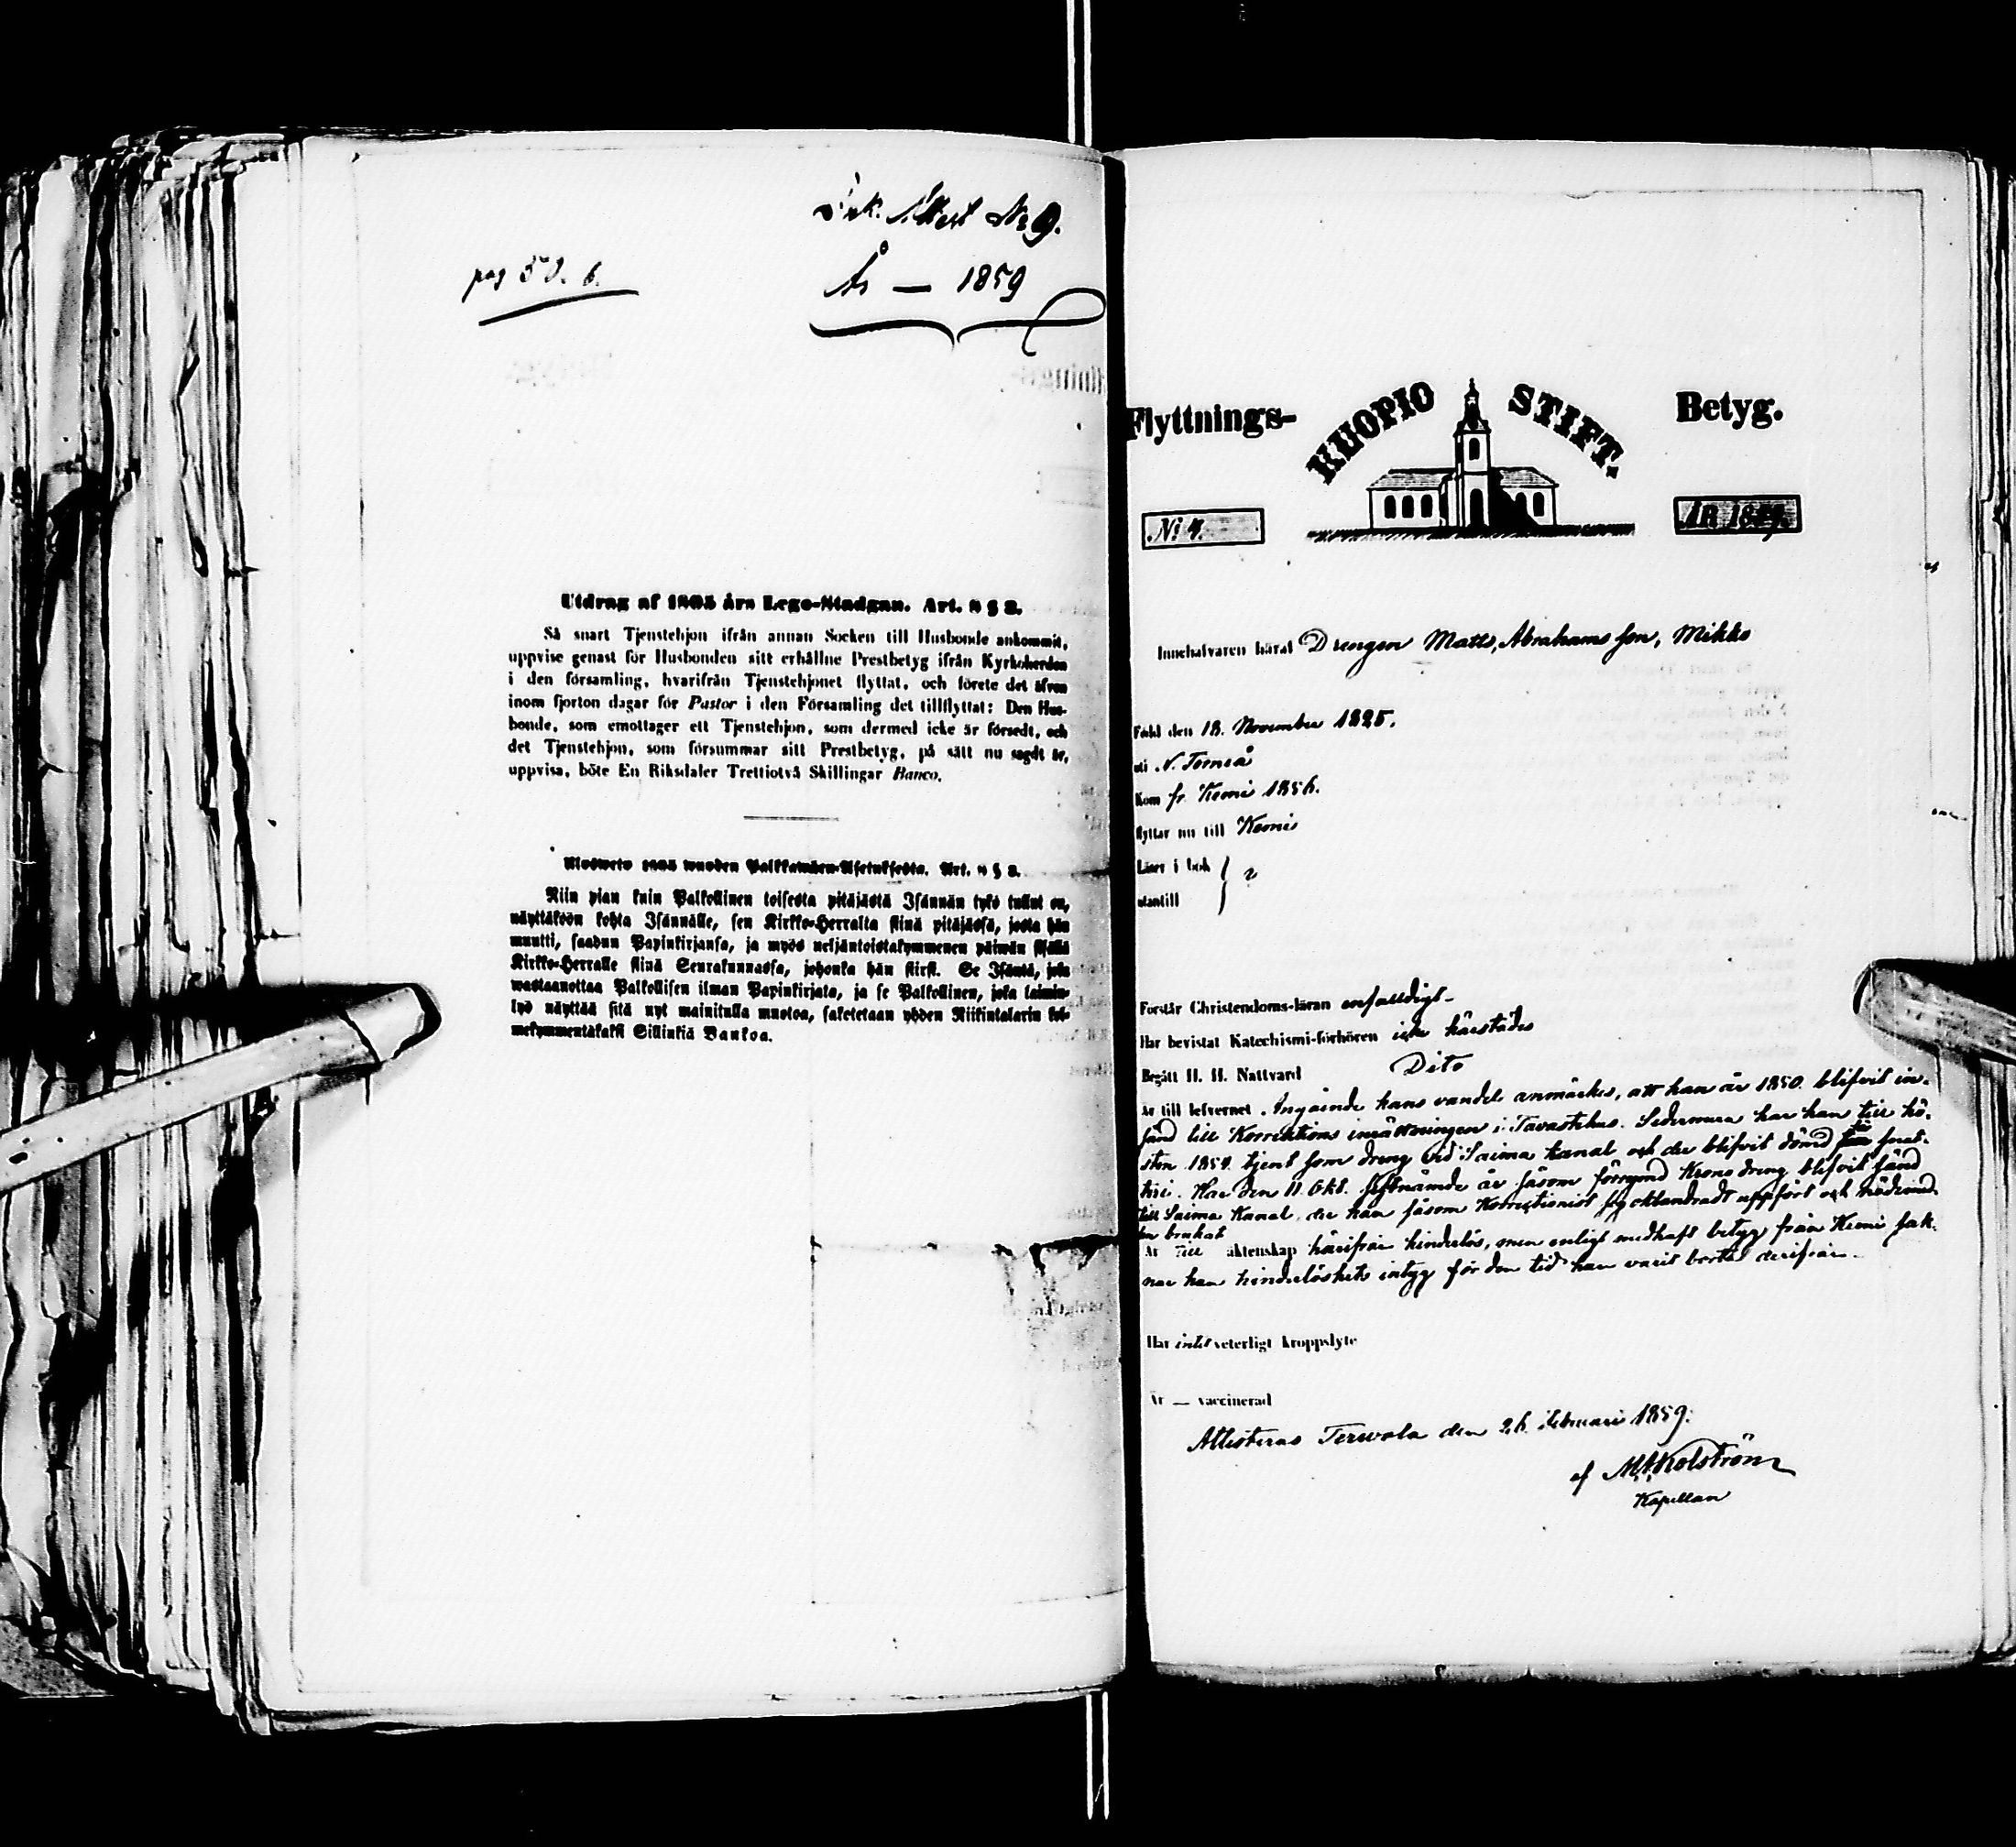 Ink. Attest No 9.
pag 50. b.
År — 1859
Utdrag af 1805 års Lego-Stadgan. Art. 4 § 3.
Så snart Tjenstehjon ifrån annan Socken till Husbonde ankommit,
uppvise genast för Husbonden sitt erhållne Prestbetyg ifrån Kyrkoherden
i den församling, hvarifrån Tjenstehjonet flyttat, och förete det äfven
inom fjorton dagar för Pastor i den Församling det tillflyttat: Den Hus-
bonde, som emottager ett Tjenstehjon, som dermed icke är försedt, och
det Tjenstehjon, som försummar sitt Prestbetyg, på sätt nu sagdt är,
uppvisa, böte En Riksdaler Trettiotvå Skillingar Banco.
Ulosweto 1805 wuoden Palkkawäen-Asetuksesta. Art. 4 § 3.
Niin pian kuin Palkollinen toisesta pitäjästä Isännän tykö tullut on,
näyttäköön kohta Isännälle, sen Kirkko-Herralta siinä pitäjässä, josta hän
muutti, saadun Papinkirjansa, ja myös neljäntoistakymmenen päiwän sisällä
Kirkko-Herralle siinä Seurakunnassa, johonka hän siirsi. Se Isäntä, joka
wastaanottaa Palkollisen ilman Papinkirjata, ja se Palkollinen, joka laimin-
lyö näyttää sitä nyt mainitulla muotoa, saketetaan yhden Riikintalarin kol-
mekymmentäkaksi Sillinkiä Bankoa.
Flyttnings- KUOPIO STIFT. Betyg.
No 4. ÅR 1859.
Innehafvaren häraf Drengen Matts, Abrahamsson, Mikko
Född den 18. November 1825.
uti N. Torneå
Kom fr. Kemi 1856.
flyttar nu till Kemi
Läser i bok
utantill
Förstår Christendoms-läran enfalldigt
Har bevistat Katechismi-förhören icke härstädes
Begått H. H. Nattvard Dito
Är till lefvernet. Angående hans vandel anmärkes, att han år 1850. blifvit in-
sänd till Korrektions inrättningen i Tavastehus. Sedermera har han till hö-
sten 1854 tjent som dreng vid Saima kanal och der blifvit dömd för snat-
teri. Har den 11. Okt. sistnämde år såsom förrymd Krono dreng blifvit sänd
till Saima Kanal, der han såsom Korrectionist sig oklandradt uppfört och nådemed-
len brukat
Är Till äktenskap härifrån hinderlös, men enligt medhaft betyg från Kemi sak-
nar han hinderlöshets intyg för den tid han varit borta derifrån.
Har intet veterligt kroppslyte
Är — vaccinerad
Attesteras Terwola den 26. Februari 1859.
af M. A. Kolström
Kapellan